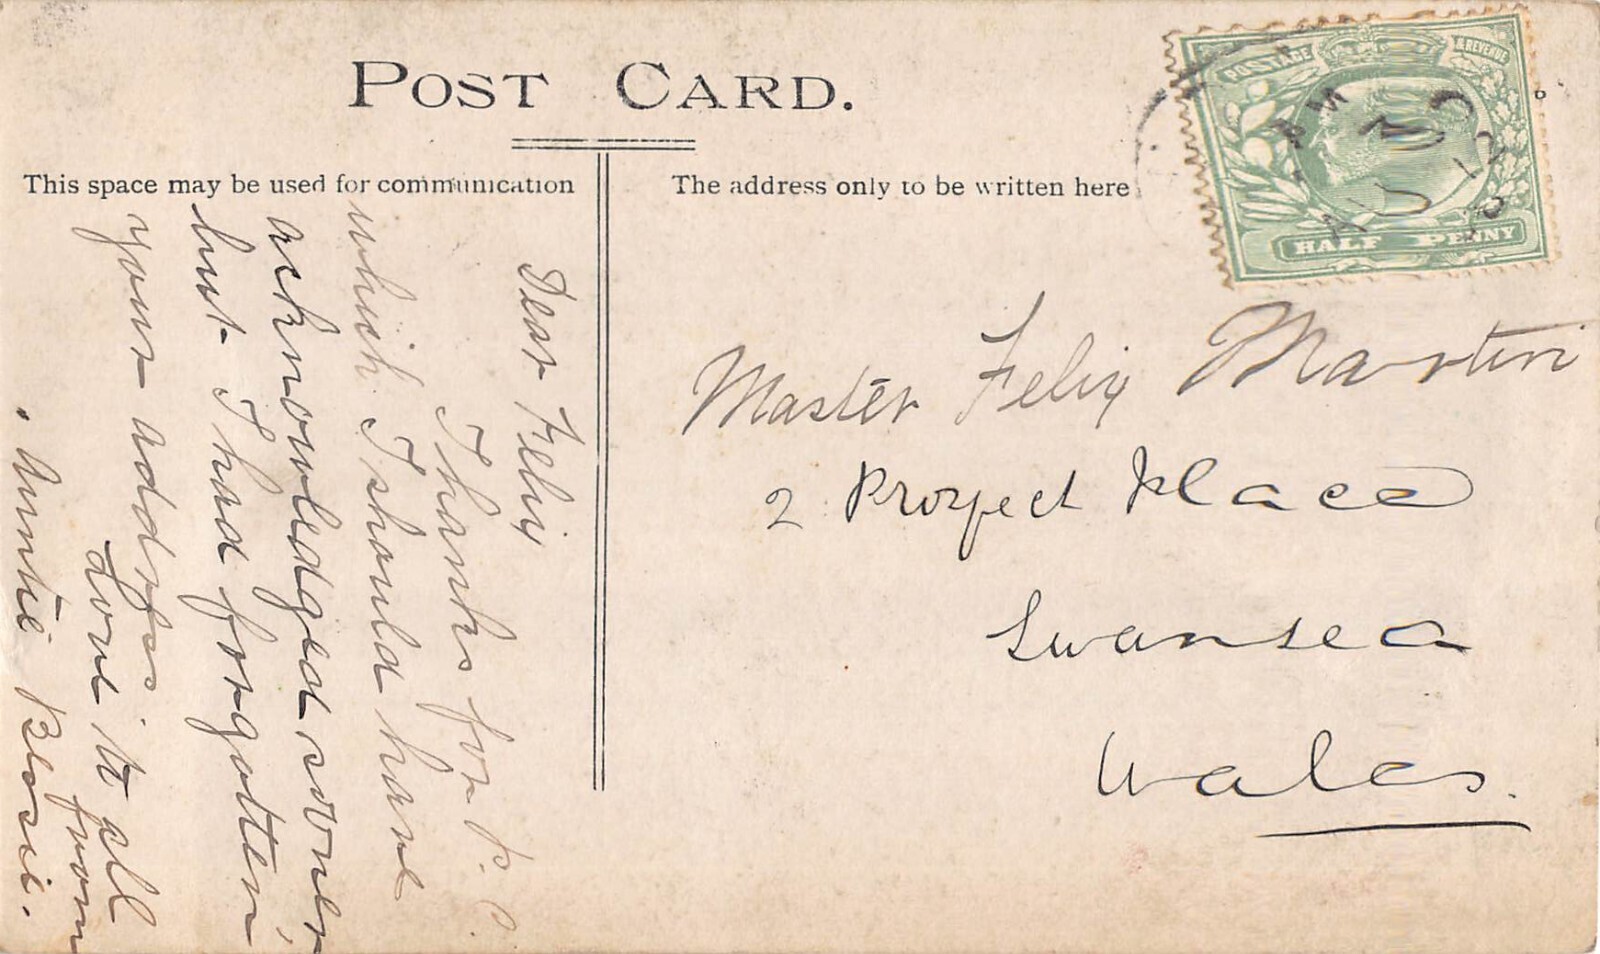 POST CARD.
This space may be used for communication
The address only to be written here
POSTAGE & REVENUE
HALF PENNY
Dear Felix
Thanks for P. C.
which I should have
acknowledged sooner,
but I had forgotten
your address.
Love to all
from
Auntie
Master Felix Martin
2 Place
Swansea
Wales.